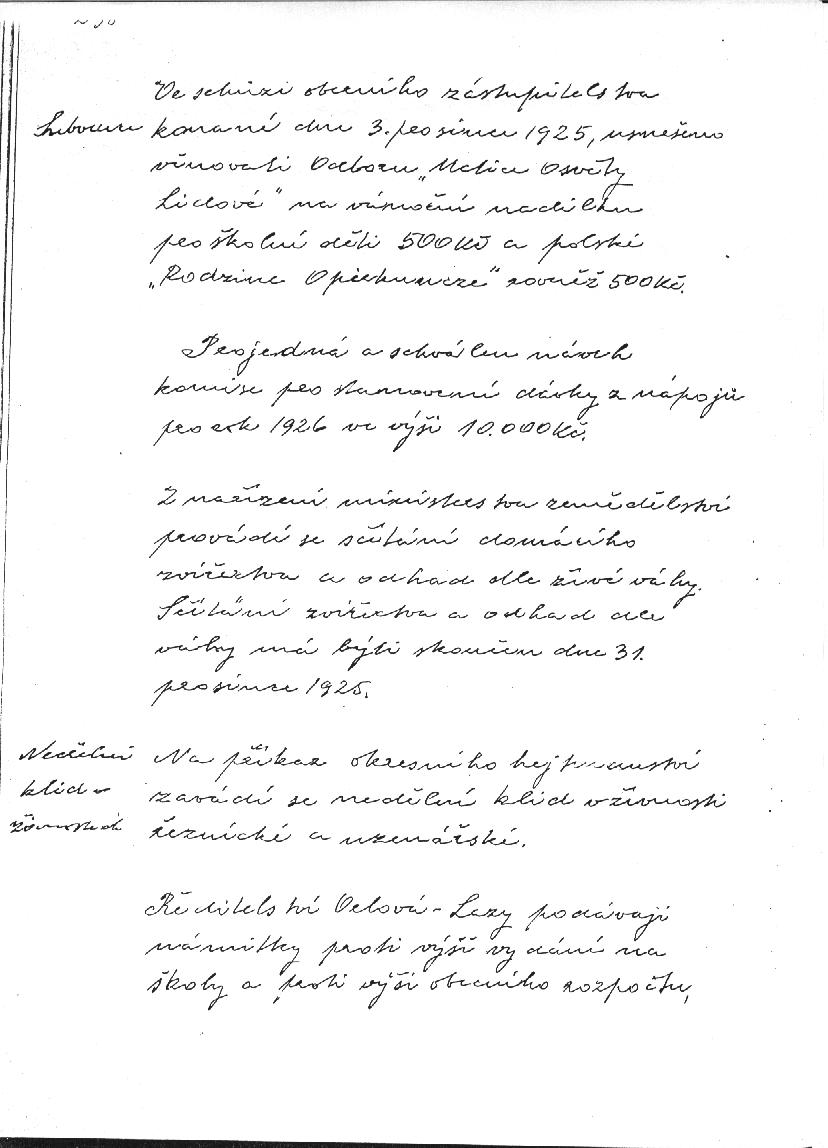 Ve schůzi obecního zástupitelstva
konané dne 3. prosince 1925, usnešeno
věnovati Odboru „Matice Osvěty
Lidové" na vánoční nadílku
pro školní děti 500 Kč a polské
„Rodzine Opiekuncze" rovněž 500 Kč.
Projedná a schválen návrh
komise pro stanovení dávky z nápojů
pro rok 1926 ve výši 10.000 Kč.
Z nařízení ministerstva zemědělství
provádí se sčítání domácího
zvířectva a odhad dle živé váhy.
Sčítání zvířectva a odhad dle
váhy má býti skončen dne 31.
prosince 1925.
Nedělní
klid v
živnostech
Na příkaz okresního hejtmanství
zavádí se nedělní klid v živnosti
řeznické a uzenářské.
Ředitelství Orlová-Lazy podávají
námitky proti výši vydání na
školy a proti výši obecního rozpočtu,